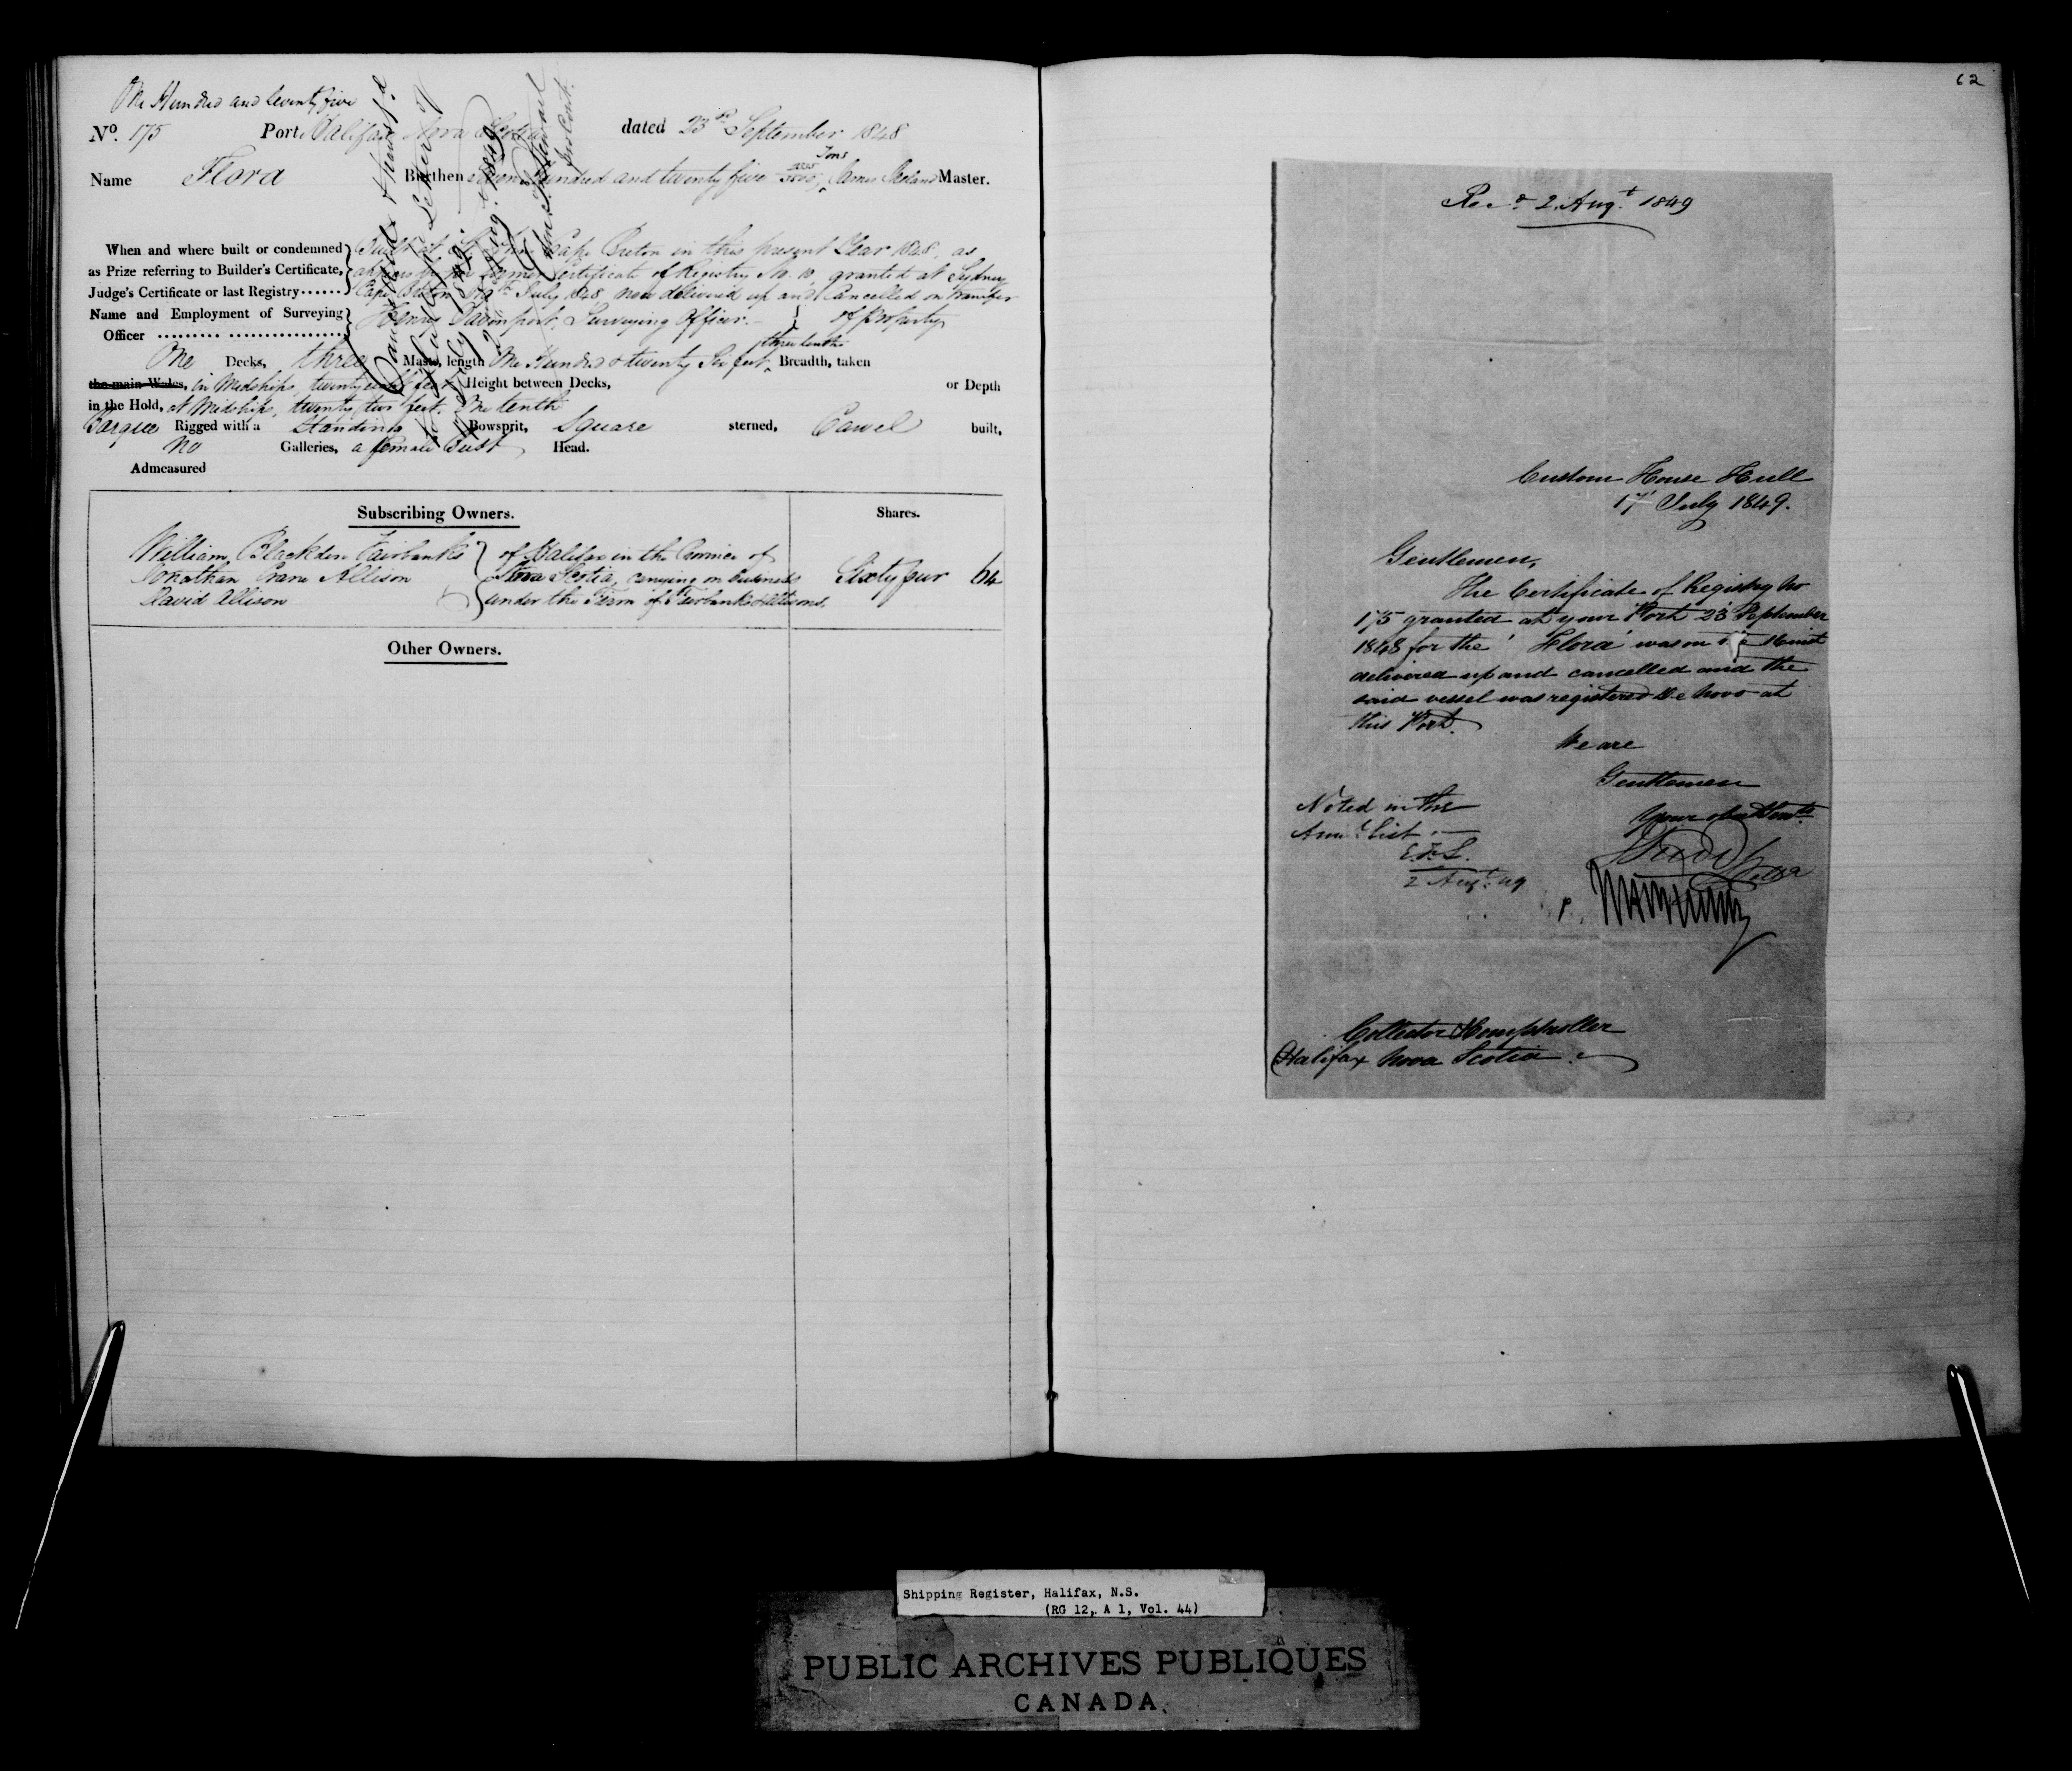 One Hundred and Seventy five
No. 175 Port Halifax Nova Scotia dated 23rd September 1848
Name Flora Burthen Hundred and twenty five Tons, James Master.
When and where built or condemned
as Prize referring to Builder's Certificate,
Judge's Certificate or last Registry......
Built at Cape Breton in this present Year 1848, as
appears by former Certificate of Registry No. 10, granted at Sydney
Cape Breton July 1848 now delivered up and Cancelled on transfer
of property
Name and Employment of Surveying
Officer
Henry Davenport, Surveying Officer.
One Decks, three Masts, length One Hundred & twenty Six feet, three tenths Breadth, taken
the main Wales, in Midships, twenty feet Height between Decks, or Depth
in the Hold, at Midships, twenty two feet. One tenth
Barque Rigged with a Standing Bowsprit, Square sterned, Carvel built,
No Galleries, a female Bust Head.
Admeasured
Subscribing Owners. Shares.
William Blackden Fairbanks
Jonathan Crane Allison
David Allison
of Halifax in the Province of
Nova Scotia, carrying on business
under the Firm of Fairbanks & Allisons.
Sixty four 64
Other Owners.
62
Recd 2 Augt 1849
Custom House Hull
17 July 1849.
Gentlemen,
The Certificate of Registry No
175 granted at your Port 23 September
1848 for the 'Flora' was on the
delivered up and cancelled and the
said vessel was registered de novo at
this Port.
We are
Gentlemen
Your
Noted in the
List
2 Augt 49
Collector & Comptroller
Halifax Nova Scotia
Shipping Register, Halifax, N.S.
(RG 12, A 1, Vol. 44)
PUBLIC ARCHIVES PUBLIQUES
CANADA